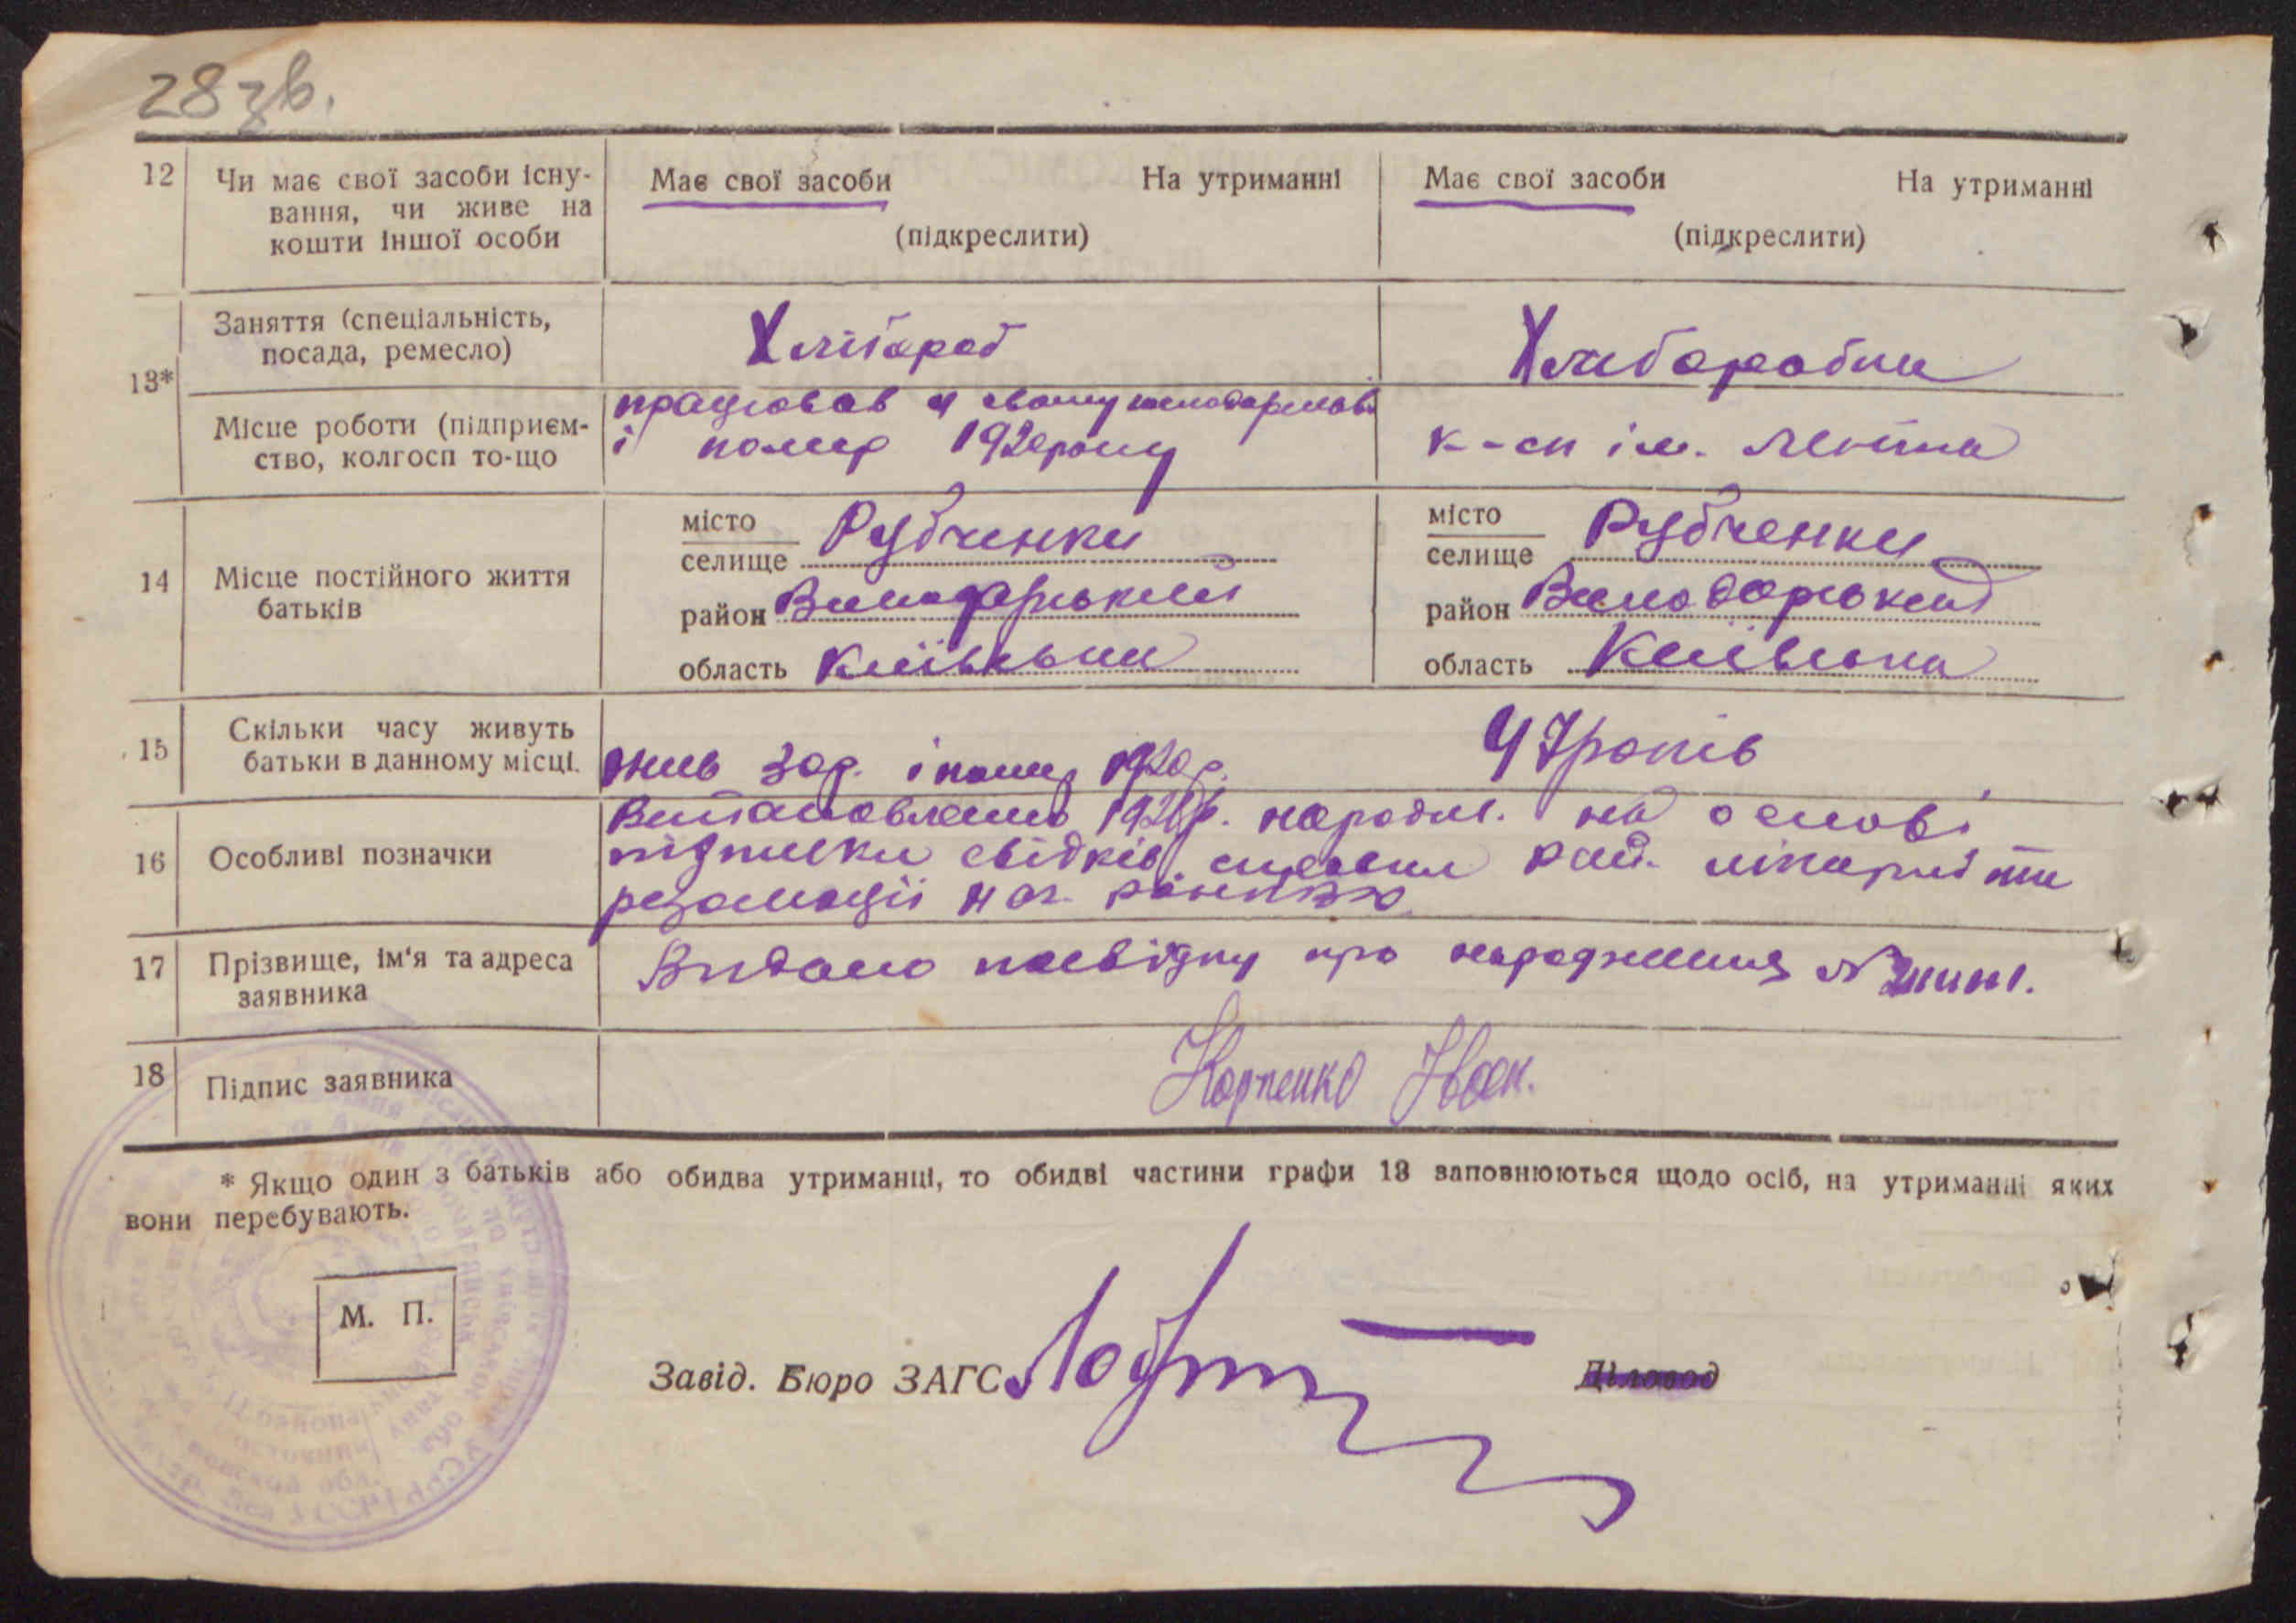 28 зв.
12 Чи має свої засоби існу- Має свої засоби На утриманні Має свої засоби На утриманні
вання, чи живе на
кошти іншої особи (підкреслити) (підкреслити)
13* Заняття (спеціальність, Хлібороб Хлиборобка
посада, ремесло)
Місце роботи (підприєм- працював у свому господарстві
ство, колгосп то-що і помер 1920 року к-сп ім. Леніна
14 Місце постійного життя місто Рубченки місто Рубченки
батьків селище селище
район Володарський район Володарський
область Київська область Київська
15 Скільки часу живуть 47 років
батьки в данному місці. жив 30 р. і помер 1920 р.
Встановлено 1920 р. народж. на основі
16 Особливі позначки підписки свідків, справки рай. лікарні та
резолюції нач.
17 Прізвище, ім'я та адреса Видано посвідку про народження №
заявника
18 Підпис заявника Карпенко Іван.
* Якщо один з батьків або обидва утриманці, то обидві частини графи 13 заповнюються щодо осіб, на утриманні яких
вони перебувають.
М. П.
Завід. Бюро ЗАГС Діловод